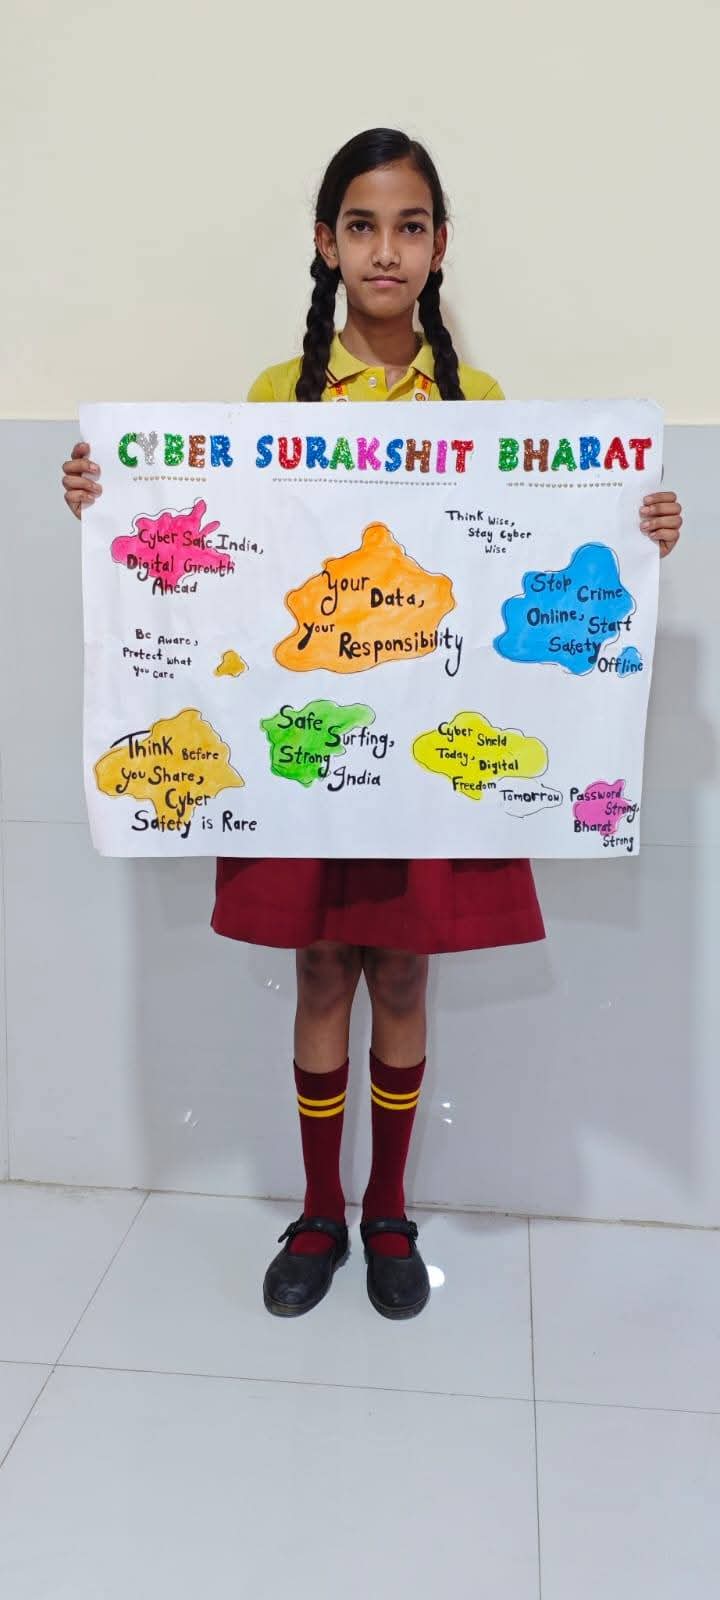 CYBER SURAKSHIT BHARAT
Cyber Safe India,
Digital Growth
Ahead
Your Data,
Your Responsibility
Think Wise,
Stay Cyber
Wise
Stop Crime
Online, Start
Safety
Offline
Be Aware,
Protect what
you care
Think Before
You Share,
Cyber
Safety is Rare
Safe Surfing,
Strong
India
Cyber Sheld
Today, Digital
Freedom
Tomorrow
Password
Strong,
Bharat
Strong